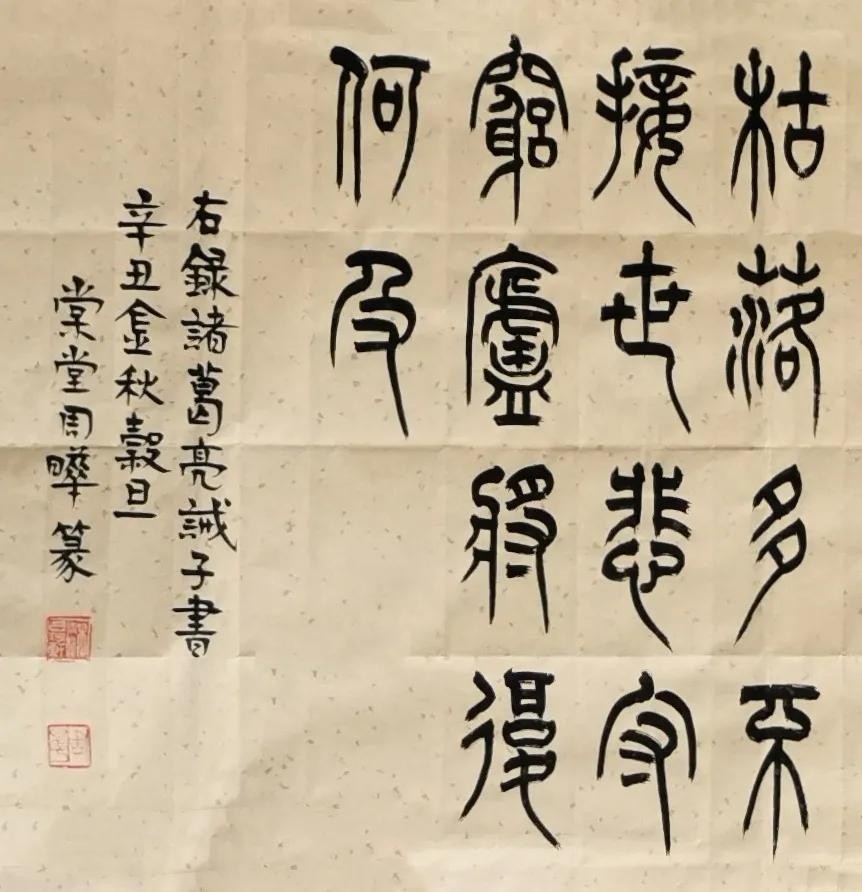 枯落多不
接世悲守
窮廬將復
何及
右録諸葛亮誡子書
辛丑金秋穀旦
棠堂周曄篆